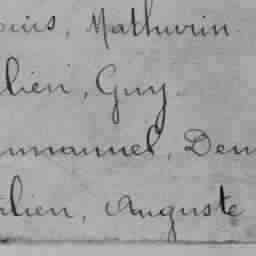 ouis, Mathurin
lien, Guy
mmanuel, Den
lien, Auguste